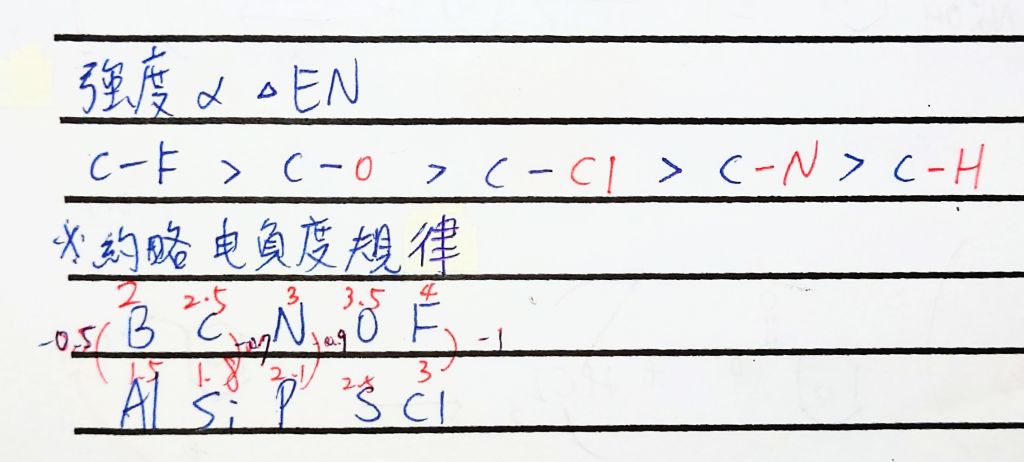 強度 ∝ △EN
C-F > C-O > C-Cl > C-N > C-H
※約略电負度規律
2 2.5 3 3.5 4
-0.5( B C -0.7 N )-0.9 O F ) -1
1.5 1.8 2.1 2.5 3
Al Si P S Cl